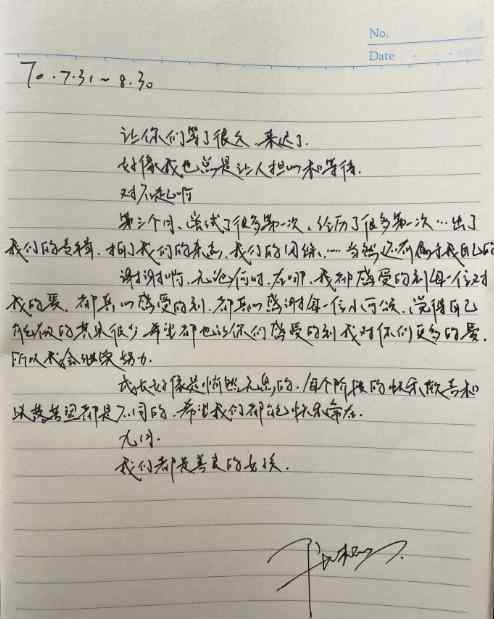 No.
Date
To. 7.31~8.30
让你们等了很久,来迟了.
好像我也总是让人担心和等待.
对不起啊
第三个月、尝试了很多第一次、经历了很多第一次…出了
我们的专辑.拍了我们的杂志.我们的团综.…当然还有属于我自己的
谢谢啊.无论何时.在哪.我都感受的到每一位对
我的爱.都真心感受的到.都真心感谢每一位小可爱.觉得自己
能做的其实很少.希望都也让你们感受的到我对你们更多的爱.
所以我会继续努力.
成长好像是悄然无息的.每个阶段的快乐
都是不同的.希望我们都能快乐常在.
九月.
我们都是善良的女孩.